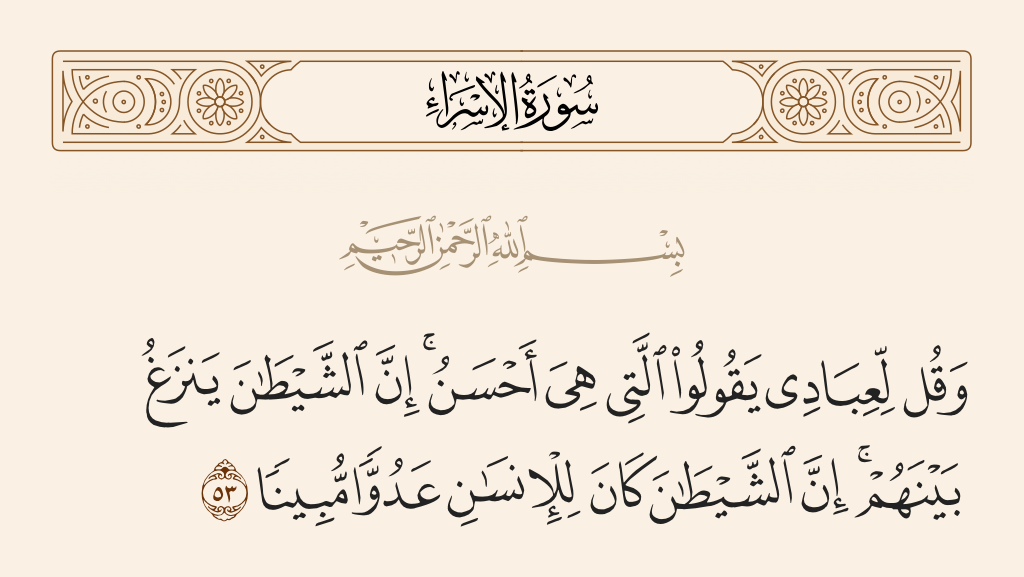 سُورَةُ الإِسْرَاءِ
بِسْمِ ٱللَّهِ ٱلرَّحْمَٰنِ ٱلرَّحِيمِ
وَقُل لِّعِبَادِى يَقُولُوا۟ ٱلَّتِى هِىَ أَحْسَنُ ۚ إِنَّ ٱلشَّيْطَـٰنَ يَنزَغُ
بَيْنَهُمْ ۚ إِنَّ ٱلشَّيْطَـٰنَ كَانَ لِلْإِنسَـٰنِ عَدُوًّا مُّبِينًا ٥٣